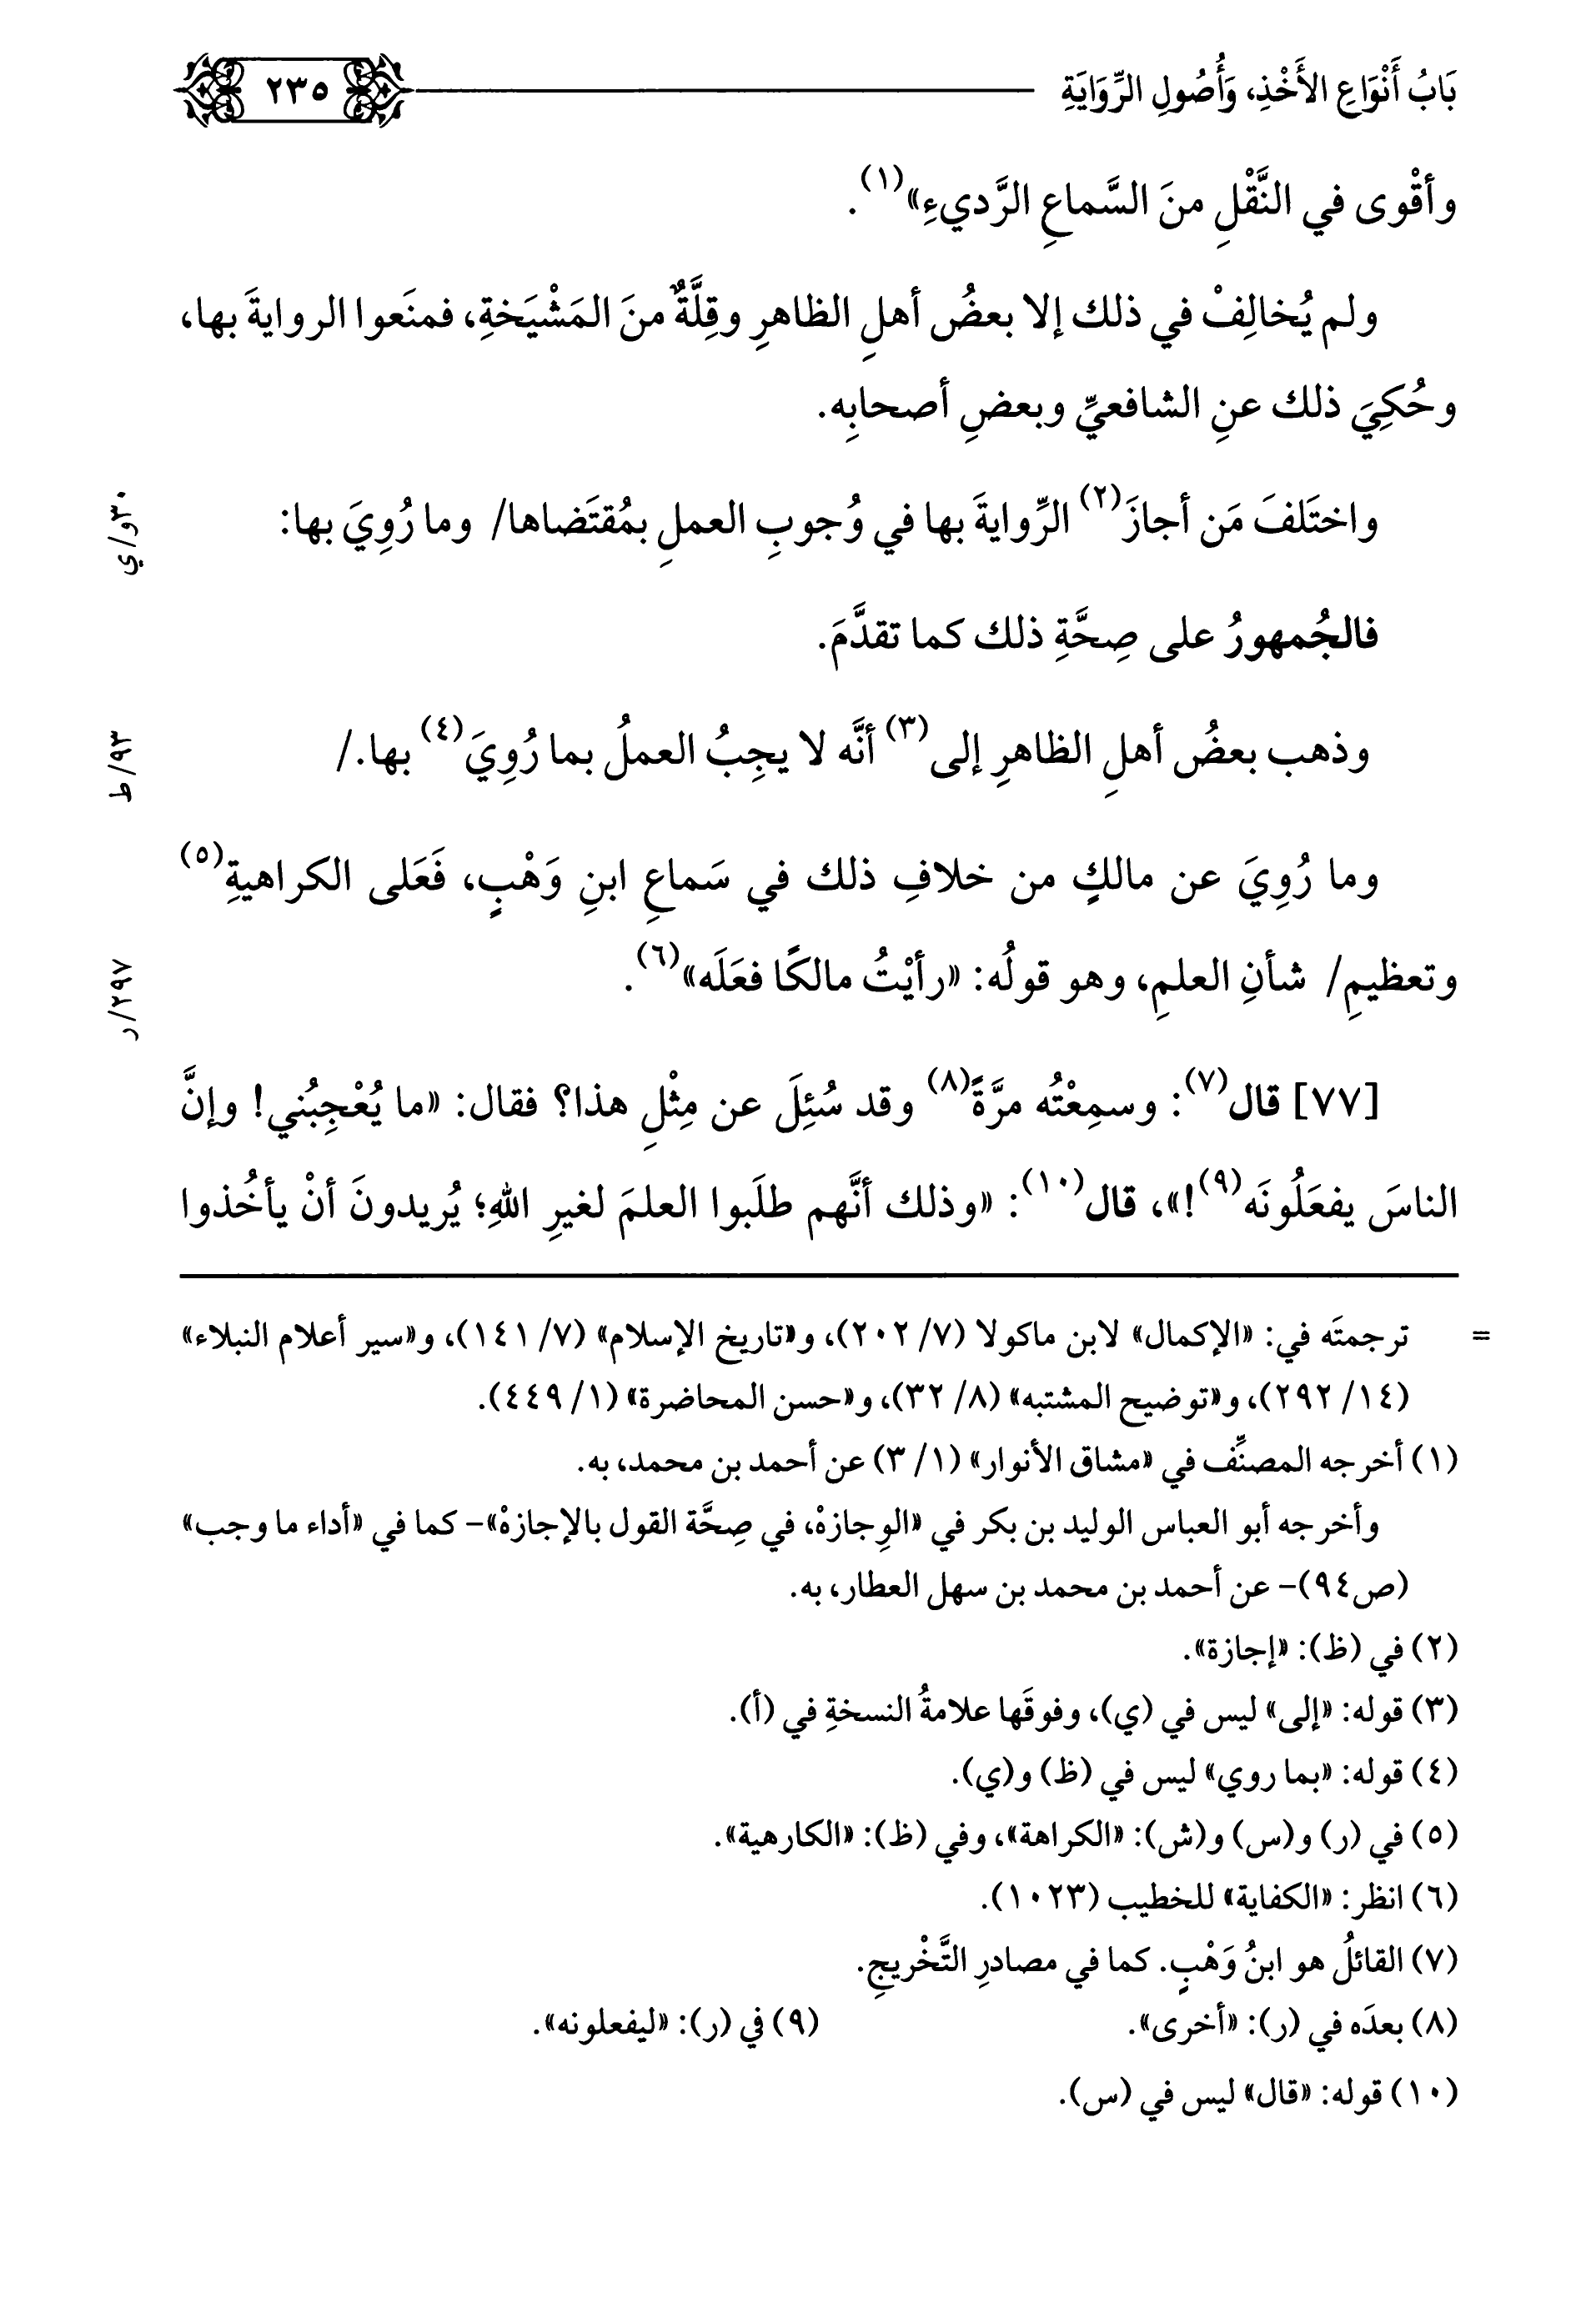 بَابُ أَنْوَاعِ الأَخْذِ، وَأُصُولِ الرِّوَايَةِ ٢٣٥
وأقْوى في النَّقْلِ منَ السَّماعِ الرَّديءِ»(١).
ولم يُخالِفْ في ذلك إلا بعضُ أهلِ الظاهرِ وقِلَّةٌ منَ المَشْيَخةِ، فمنَعوا الروايةَ بها،
وحُكِيَ ذلك عنِ الشافعيِّ وبعضِ أصحابِه.
واختَلفَ مَن أجازَ(٢) الرِّوايةَ بها في وُجوبِ العملِ بمُقتَضاها/ وما رُوِيَ بها:
٣٠و/ي
فالجُمهورُ على صِحَّةِ ذلك كما تقدَّمَ.
وذهب بعضُ أهلِ الظاهرِ إلى(٣) أنَّه لا يجِبُ العملُ بما رُوِيَ(٤) بها./
٩٣/ط
وما رُوِيَ عن مالكٍ من خلافِ ذلك في سَماعِ ابنِ وَهْبٍ، فَعَلى الكراهيةِ(٥)
وتعظيمِ/ شأنِ العلمِ، وهو قولُه: «رأيْتُ مالكًا فعَلَه»(٦).
٢٩٧/ر
[٧٧] قال(٧): وسمِعْتُه مرَّةً(٨) وقد سُئِلَ عن مِثْلِ هذا؟ فقال: «ما يُعْجِبُني! وإنَّ
الناسَ يفعَلُونَه(٩)!»، قال(١٠): «وذلك أنَّهم طلَبوا العلمَ لغيرِ اللهِ؛ يُريدونَ أنْ يأخُذوا
= ترجمتَه في: «الإكمال» لابن ماكولا (٧/ ٢٠٢)، و«تاريخ الإسلام» (٧/ ١٤١)، و«سير أعلام النبلاء»
(١٤/ ٢٩٢)، و«توضيح المشتبه» (٨/ ٣٢)، و«حسن المحاضرة» (١/ ٤٤٩).
(١) أخرجه المصنِّف في «مشاق الأنوار» (١/ ٣) عن أحمد بن محمد، به.
وأخرجه أبو العباس الوليد بن بكر في «الوِجازهْ، في صِحَّة القول بالإجازهْ»- كما في «أداء ما وجب»
(ص٩٤)- عن أحمد بن محمد بن سهل العطار، به.
(٢) في (ظ): «إجازة».
(٣) قوله: «إلى» ليس في (ي)، وفوقَها علامةُ النسخةِ في (أ).
(٤) قوله: «بما روي» ليس في (ظ) و(ي).
(٥) في (ر) و(س) و(ش): «الكراهة»، وفي (ظ): «الكارهية».
(٦) انظر: «الكفاية» للخطيب (١٠٢٣).
(٧) القائلُ هو ابنُ وَهْبٍ. كما في مصادرِ التَّخْريجِ.
(٨) بعدَه في (ر): «أخرى». (٩) في (ر): «ليفعلونه».
(١٠) قوله: «قال» ليس في (س).